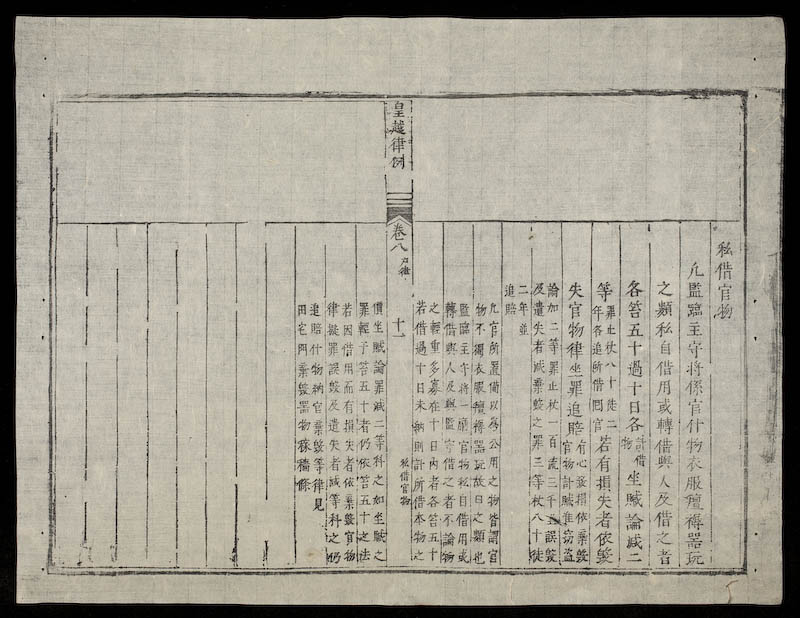 私借官物
凡監臨主守将係官什物衣服氊褥器玩
之類私自借用或轉借與人及借之者
各笞五十過十日各計借物坐贓論減二
等罪止杖八十徒二年各追所借還官若有損失者依毀
失官物律坐罪追賠有心毀損依棄毀官物計贓准窃盗
論加二等罪止杖一百流三千誤毀
及遺失者减棄毀之罪三等杖八十徒
二年並
追賠
凡官所置備以爲公用之物皆謂官
物不獨衣服氊褥器玩故曰之類也
監臨主守将一應官物私自借用或
轉借與人及與監守借之者不論物
之輕重多寡在十日內者各笞五十
若借過十日未納則計所借本物之
私借官物
皇越律例
卷八
户律
十一
價坐贓論罪減二等科之如坐贓之
罪輕于笞五十者仍依笞五十之法
若因借用而有損失者依棄毀官物
律擬罪誤毀及遺失者减等科之仍
追賠什物納官棄毀等律見
田宅門棄毀器物稼穡條